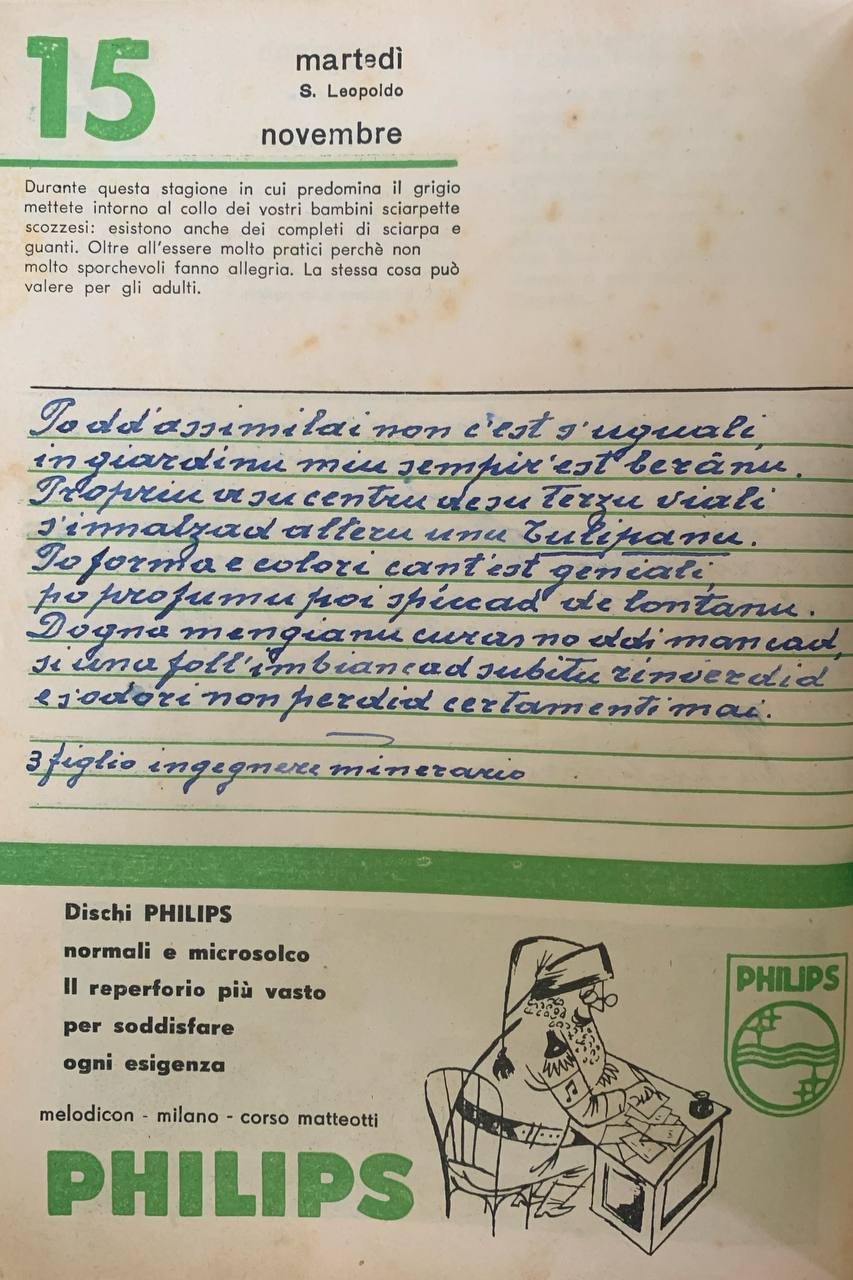 15
martedì
S. Leopoldo
novembre
Durante questa stagione in cui predomina il grigio
mettete intorno al collo dei vostri bambini sciarpette
scozzesi: esistono anche dei completi di sciarpa e
guanti. Oltre all'essere molto pratici perchè non
molto sporchevoli fanno allegria. La stessa cosa può
valere per gli adulti.
Po dd'assimilai non c'est s'uguali,
in giardinu miu sempir'est berānu.
Propriu a su centru de su terzu viali
s'innalzad alteru unu Tulipanu.
Po forma e colori cant'est geniali,
po profumu poi spiccad de lontanu.
Dogna mengianu curas no ddi mancad,
si una foll'imbiancad subitu rinverdid
e s'odori non perdid certamenti mai.
3 figlio ingegnere minerario
Dischi PHILIPS
normali e microsolco
Il reperforio più vasto
per soddisfare
ogni esigenza
melodicon - milano - corso matteotti
PHILIPS
PHILIPS